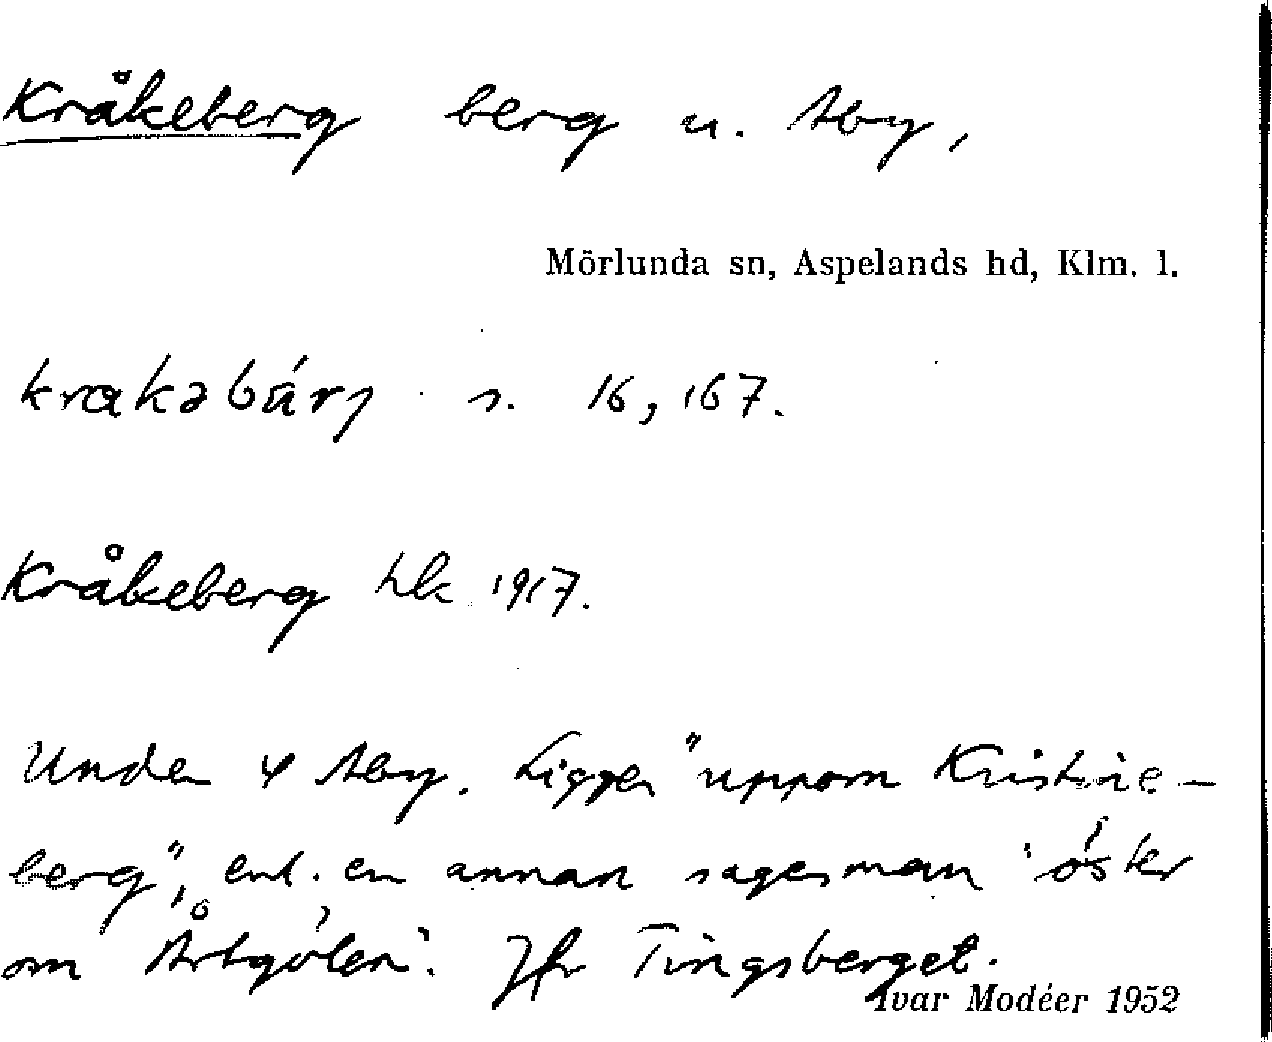 Kråkeberg berg u. Åby,
Mörlunda sn, Aspelands hd, Klm. l.
krakəbärj s. 16, 167.
Kråkeberg hlk 1917.
Under 4 Åby. Ligger "uppom Kristine-
berg", enl. en annan sagesman 'öster
om Årtgölen'. Jfr Tingsberget.
Ivar Modéer 1952